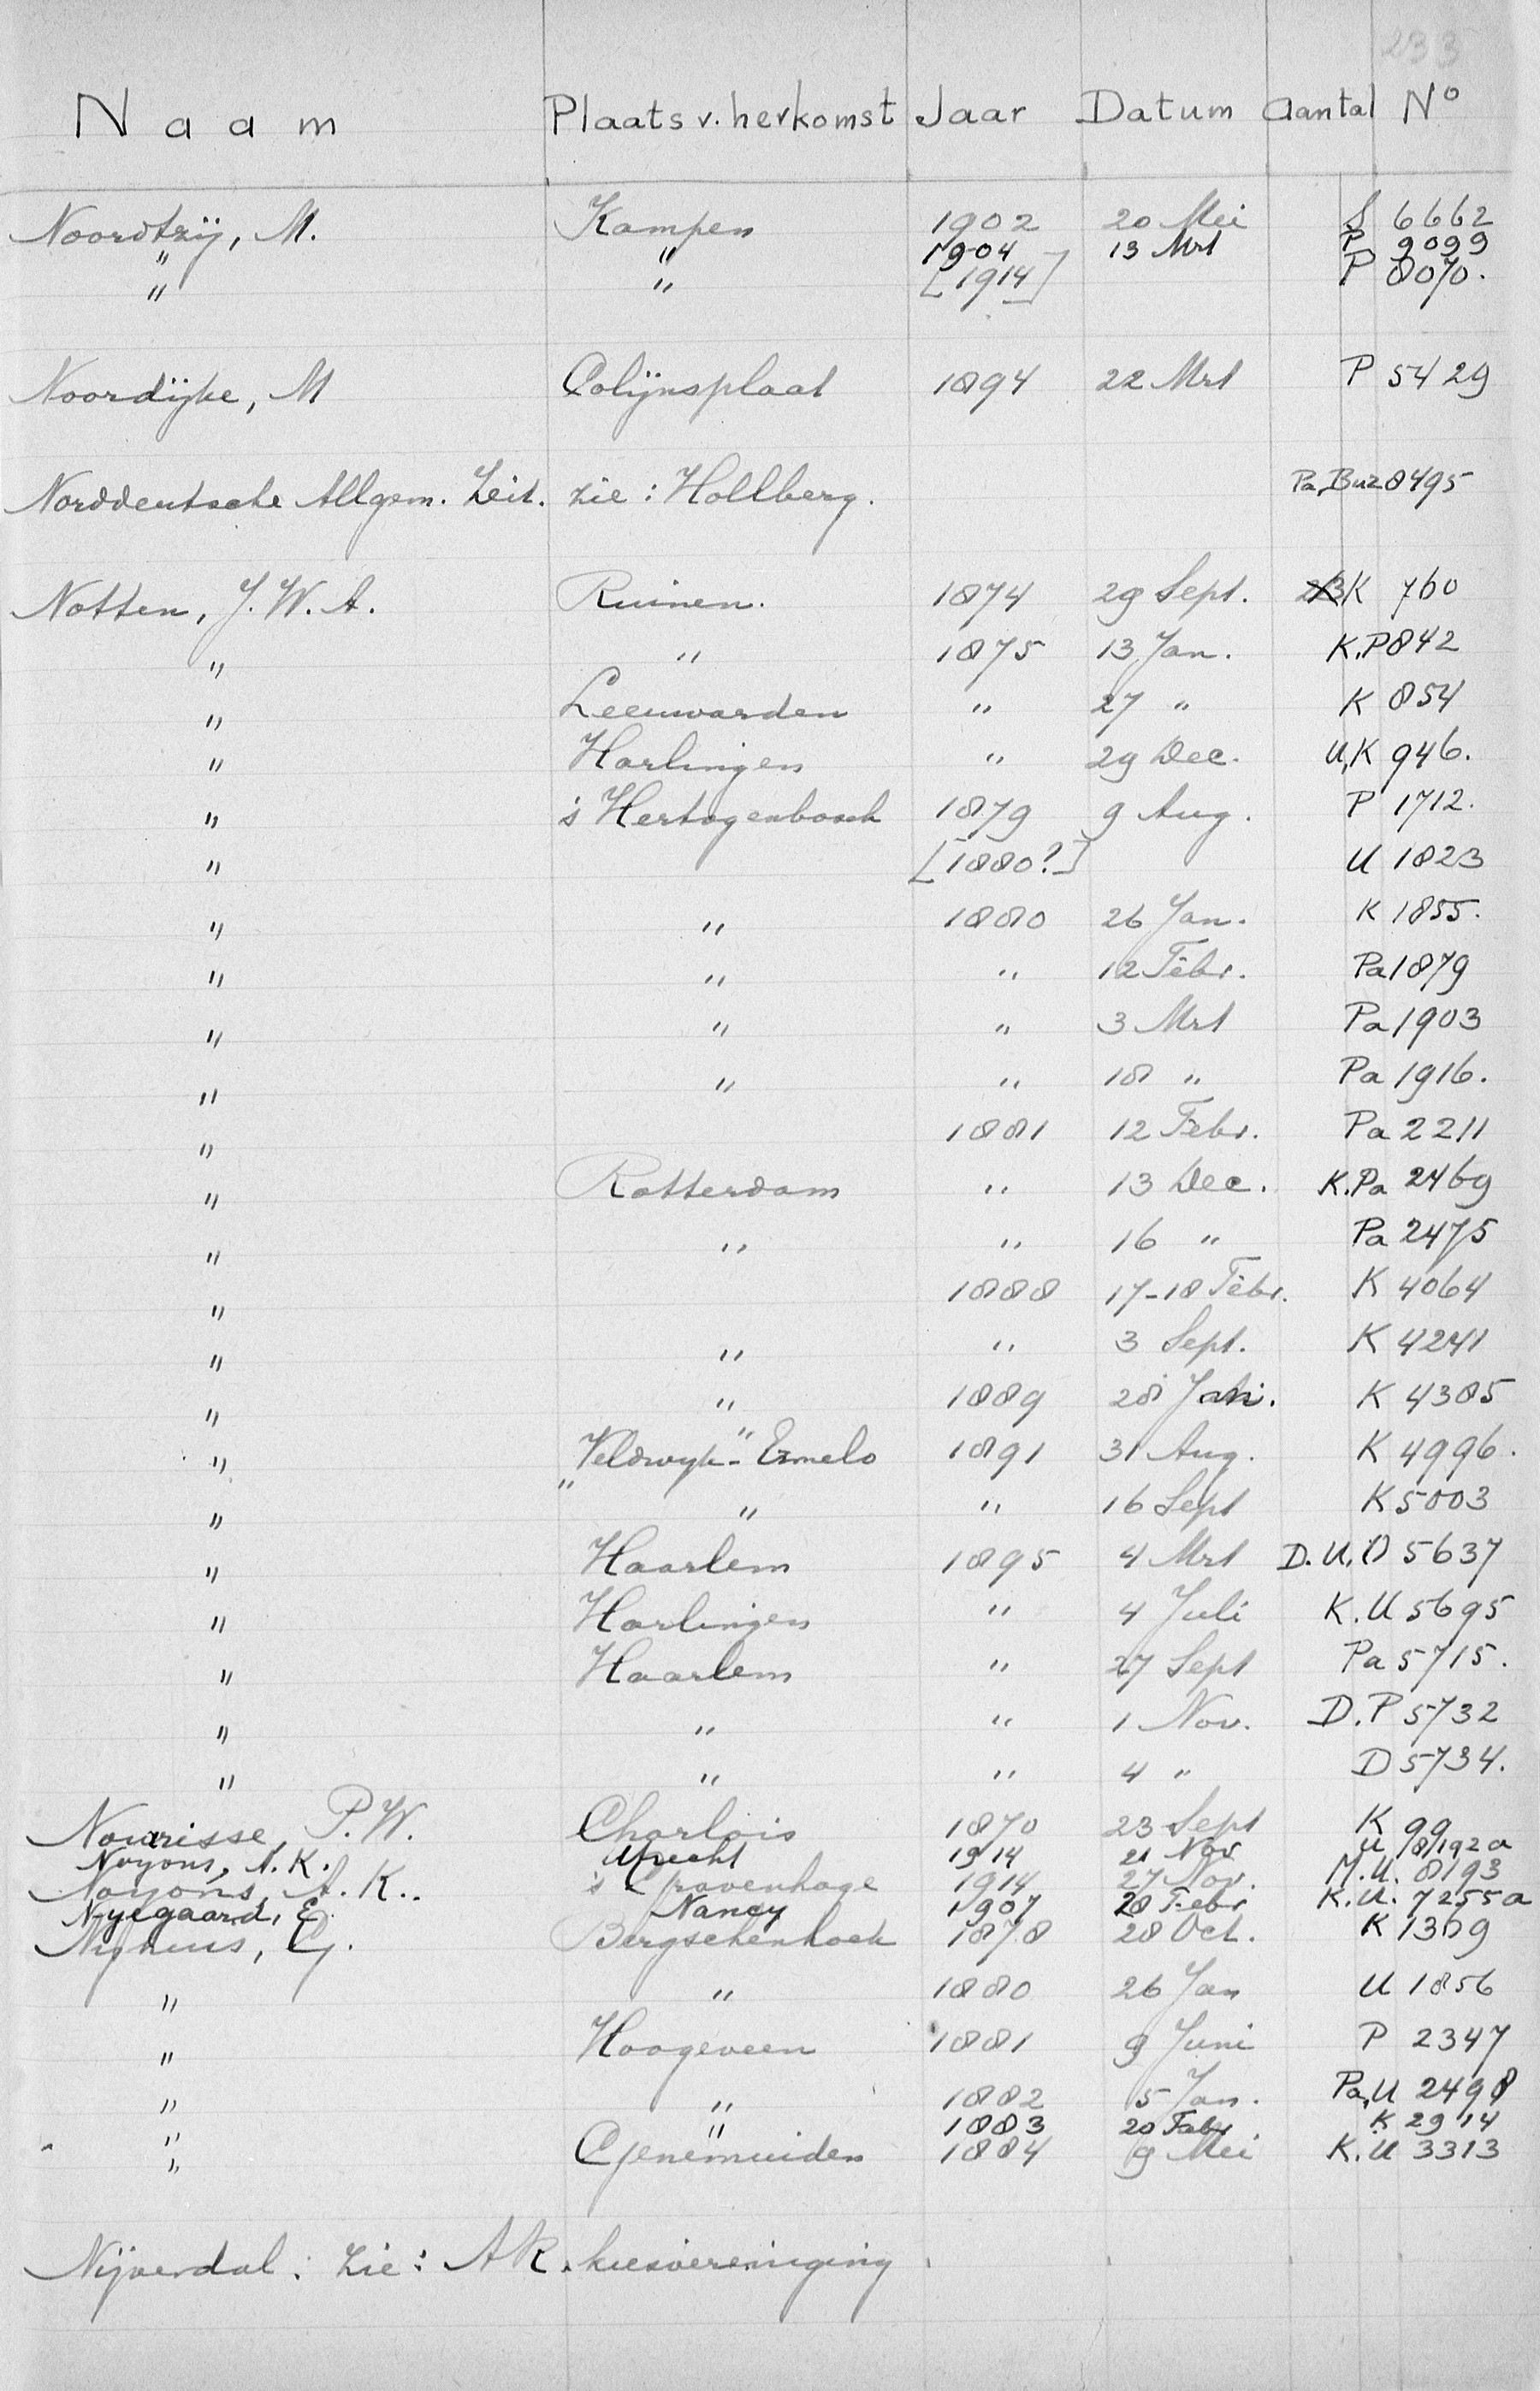 233
Naam Plaats v. herkomst Jaar Datum Aantal No
Noordtzij, M. Kampen 1902 20 Mei S 6662
" " 1904 13 Mrt P 9099
" " [1914] P 8070.
Noordijke, M Colijnsplaat 1894 22 Mrt P 5429
Norddeutsche Allgem. Zeit. zie: Hollberg. Pa, Buz 8495
Notten, J. W. A. Ruinen. 1874 29 Sept. K 760
" " 1875 13 Jan. K.P 842
" Leeuwarden " 27 " K 854
" Harlingen " 29 Dec. U,K 946.
" 's Hertogenbosch 1879 9 Aug. P 1712.
" [1880?] U 1823
" " 1880 26 Jan. K 1855.
" " " 12 Febr. Pa 1879
" " " 3 Mrt Pa 1903
" " " 18 " Pa 1916.
" 1881 12 Febr. Pa 2211
" Rotterdam " 13 Dec. K.Pa 2469
" " " 16 " Pa 2475
" 1888 17-18 Febr. K 4064
" " " 3 Sept. K 4241
" " 1889 28 Jan. K 4385
" "Veldwyk"- Ermelo 1891 31 Aug. K 4996.
" " " 16 Sept K 5003
" Haarlem 1895 4 Mrt D. U, O 5637
" Harlingen " 4 Juli K. U 5695
" Haarlem " 27 Sept Pa 5715.
" " " 1 Nov. D. P 5732
" " " 4 " D 5734.
Nourisse, P. W. Charlois 1870 23 Sept K 99
Noyons, A. K. Utrecht 1914 21 Nov U 8192a
Noyons, A. K.. 's Gravenhage 1914 27 Nov. M. U. 8193
Nyegaard, E. Nancy 1907 28 Febr K. U. 7255a
Nyhuis, Bergschenhoek 1878 28 Oct. K 1389
" " 1880 26 Jan U 1856
" Hoogeveen 1881 9 Juni P 2347
" " 1882 5 Jan. Pa, U 2498
" " 1883 20 Febr K 2914
" Genemuiden 1884 9 Mei K. U 3313
Nijverdal: zie: AR. kiesvereniging